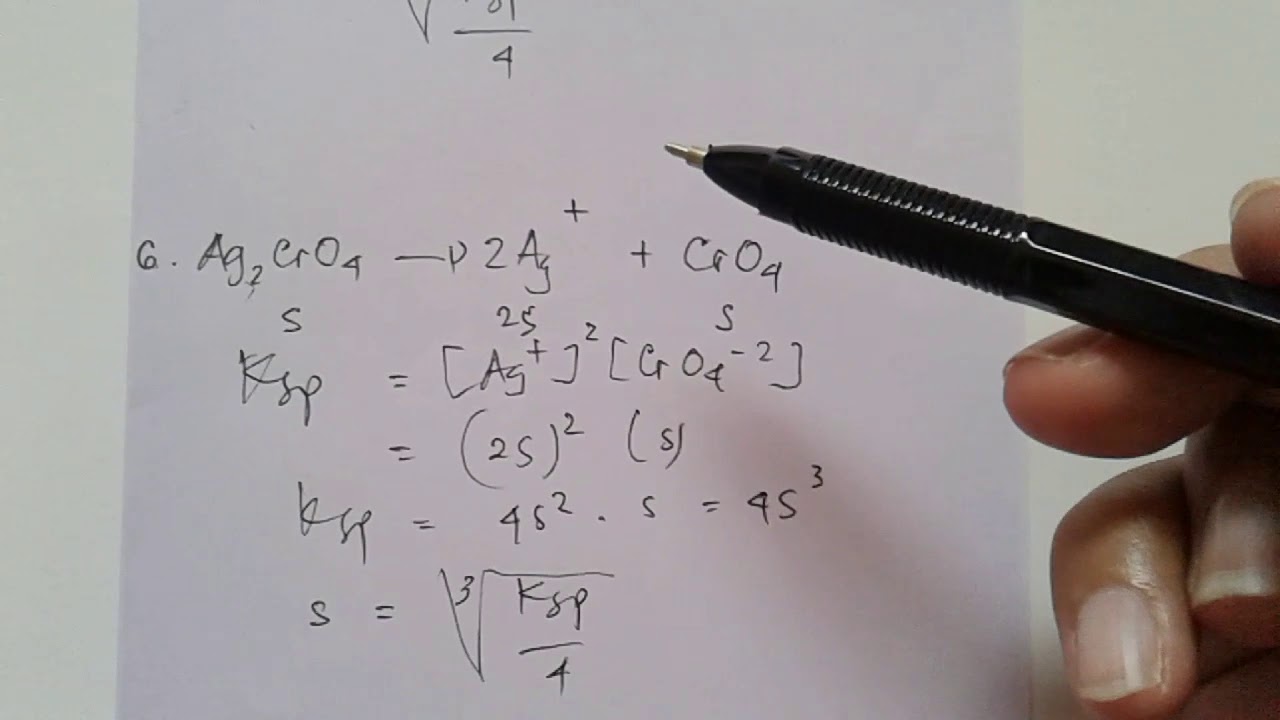 4
6. Ag₂CrO₄ → 2Ag⁺ + CrO₄
s 2s s
Ksp = [Ag⁺]² [CrO₄⁻²]
= (2s)² (s)
Ksp = 4s² . s = 4s³
s = ∛(Ksp/4)